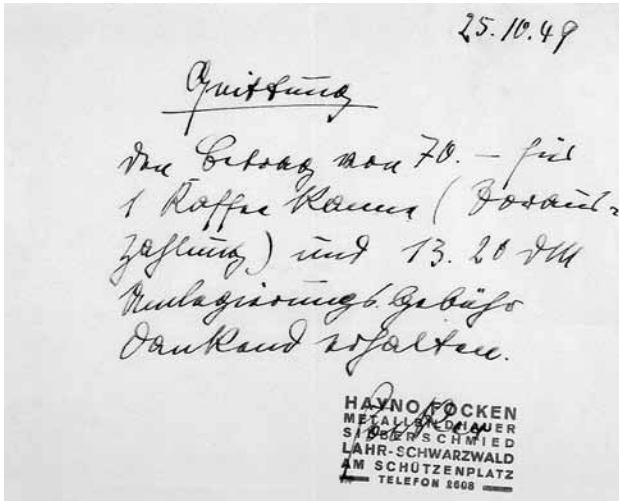 25.10.49
Quittung
den Betrag von 70.– für
1 Kaffee Kanne (Voraus-
zahlung) und 13.20 DM
Umlegierungs Gebühr
dankend erhalten.
HAYNO FOCKEN
METALLBILDHAUER
SILBERSCHMIED
LAHR-SCHWARZWALD
AM SCHÜTZENPLATZ
TELEFON 2608